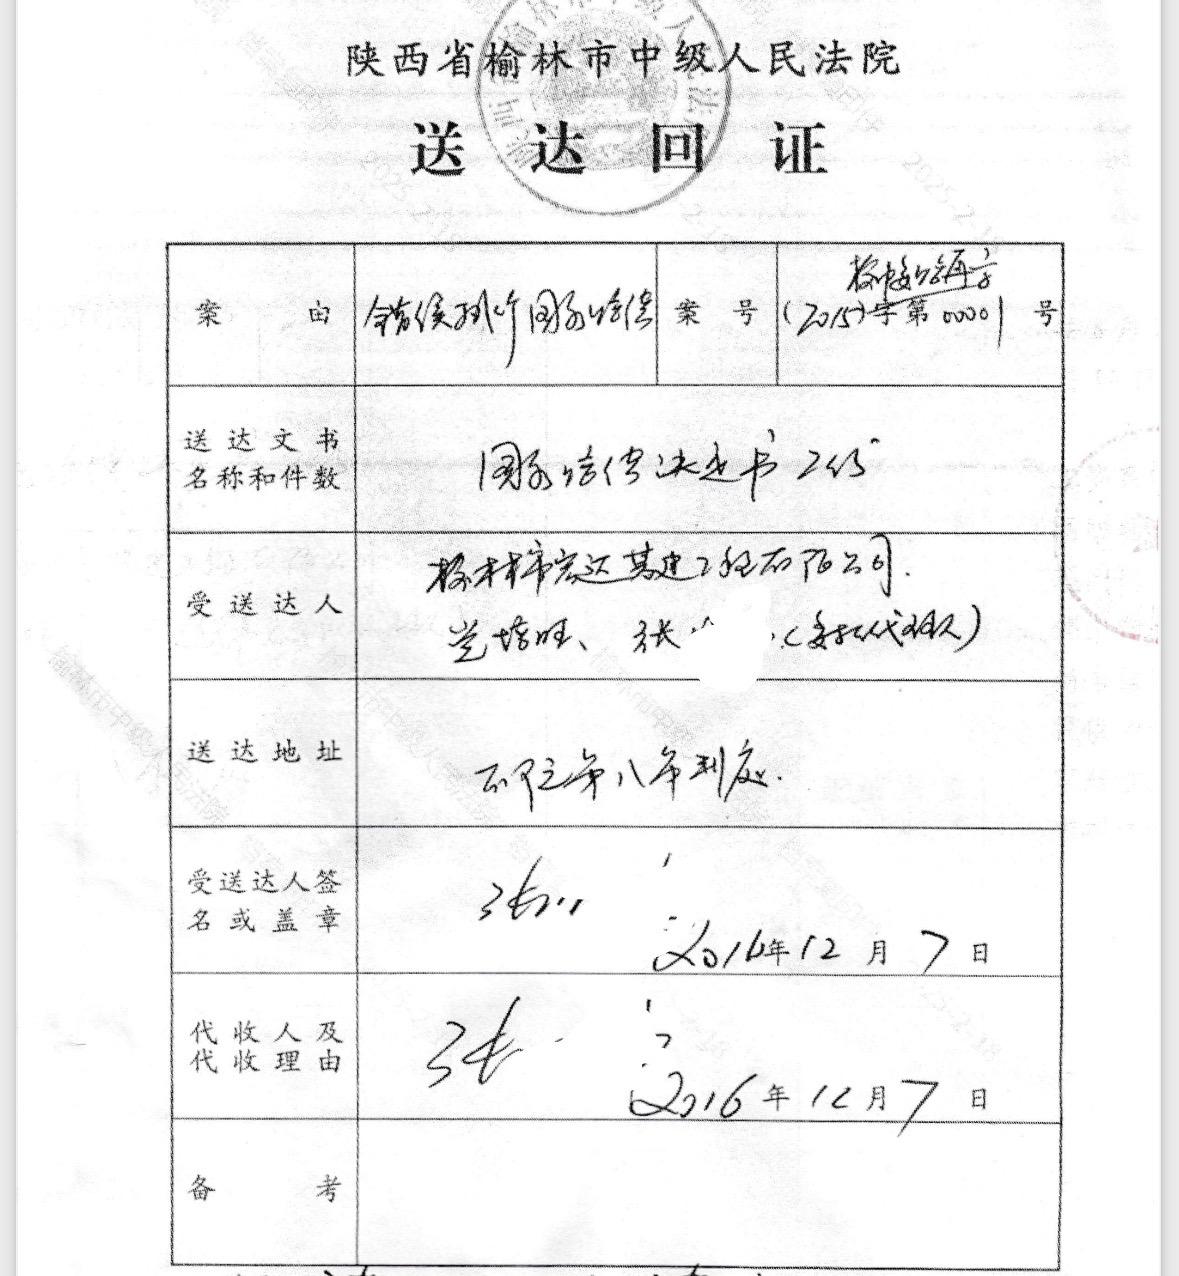 陕西省榆林市中级人民法院
送达回证
案由 错误执行国家赔偿 案号 榆中委赔再字
(2015)字第00001号
送达文书
名称和件数 国家赔偿决定书二份
受送达人 榆林市宏达基建工程有限公司.
党培旺、张 (委托代理人)
送达地址
受送达人签
名或盖章 张
2016年12月7日
代收人及
代收理由 张
2016年12月7日
备考